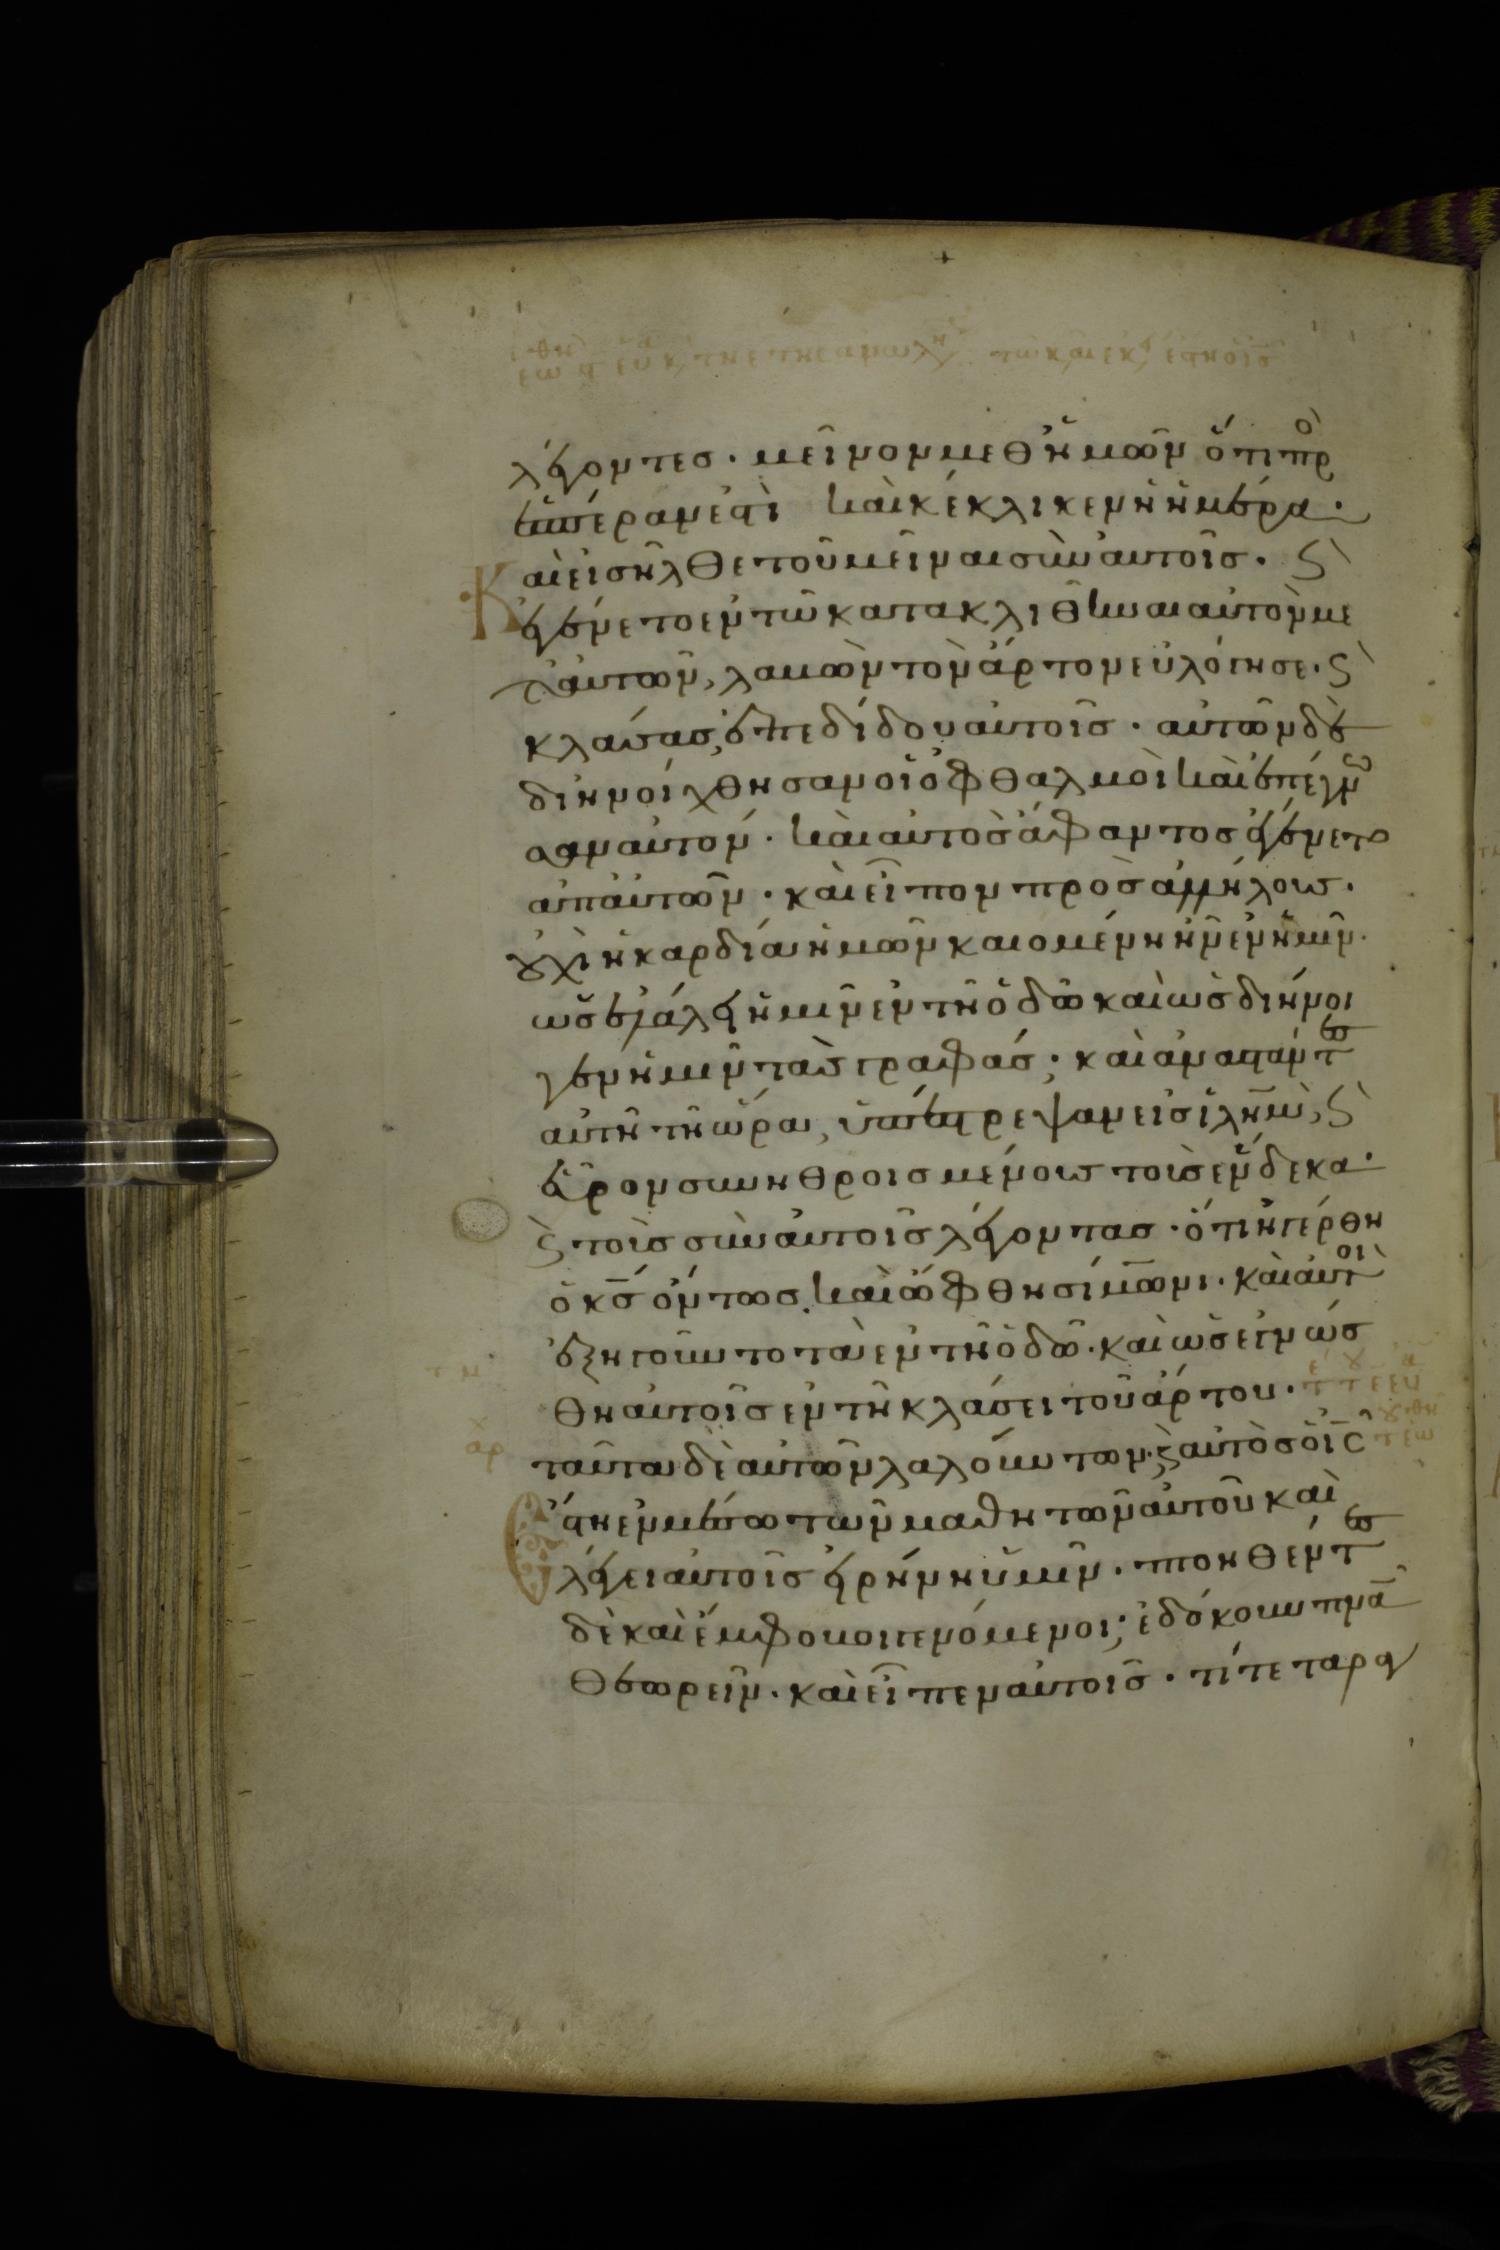 λέγοντες · μεῖνον μεθ ἡμῶν ὅτι πρὸ
ἑσπέραν ἐστὶ καὶ κέκλικεν ἡ ἡμέρα ·
Καὶ εἰσῆλθε τοῦ μεῖναι σὺν αὐτοῖς · ϛ
ἐγένετο ἐν τῶ κατακλιθῆναι αὐτὸν με
τ αὐτῶν, λαβὼν τὸν ἄρτον εὐλόγησε · ϛ
κλάσας, ἐπεδίδου αὐτοῖς · αὐτῶν δὲ
διηνοίχθησαν οἱ ὀφθαλμοὶ καὶ ἐπέγνω
σαν αὐτόν · καὶ αὐτὸς ἄφαντος ἐγένετο
ἀπ αὐτῶν · καὶ εἶπον πρὸς ἀλλήλους ·
οὐχὶ ἡ καρδία ἡμῶν καιομένη ἦν ἐν ἡμῖν ·
ὡς ἐλάλει ἡμῖν ἐν τῆ ὁδῶ καὶ ὡς διήνοι
γεν ἡμῖν τὰς γραφάς · καὶ ἀναστάντες
αὐτῆ τῆ ὥρα, ὑπέστρεψαν εἰς ἱλημ, ϛ
εὗρον συνηθροισμένους τοὺς ἕνδεκα ·
ϛ τοὺς σὺν αὐτοῖς λέγοντας · ὅτι ἠγέρθη
ὁ κς ὄντως, καὶ ὤφθη σίμωνι · καὶ αὐτοὶ
ἐξηγοῦντο τὰ ἐν τῆ ὁδῶ · καὶ ὡς ἐγνώσ
θη αὐτοῖς ἐν τῆ κλάσει τοῦ ἄρτου ·
ταῦτα δὲ αὐτῶν λαλούντων · ϛ αὐτὸς ὁ ις
Ἔστη ἐν μέσω τῶν μαθητῶν αὐτοῦ καὶ
λέγει αὐτοῖς εἰρήνη ὑμῖν · πτοηθέντες
δὲ καὶ ἔμφοβοι γενόμενοι · ἐδόκουν πνα
θεωρεῖν · καὶ εἶπεν αὐτοῖς · τί τεταραγ